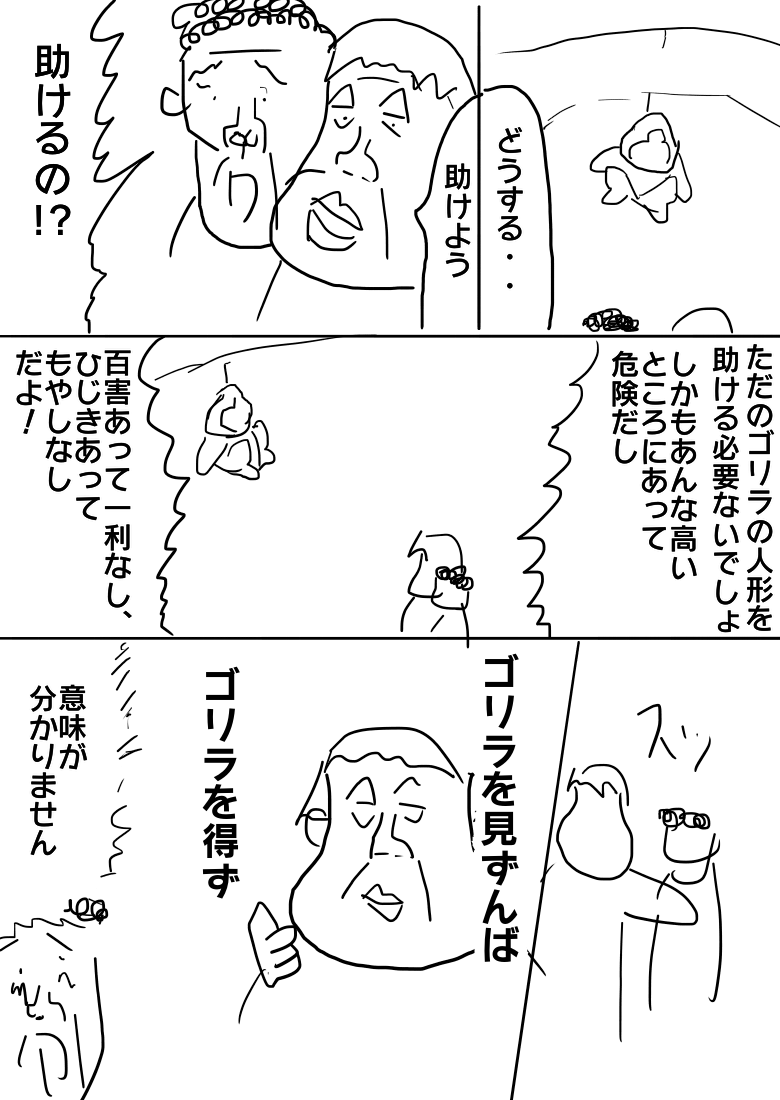 どうする・・
助けよう
助けるの!?
ただのゴリラの人形を
助ける必要ないでしょ
しかもあんな高い
ところにあって
危険だし
百害あって一利なし、
ひじきあって
もやしなし
だよ！
スッ
ゴリラを見ずんば
ゴリラを得ず
意味が
分かりません